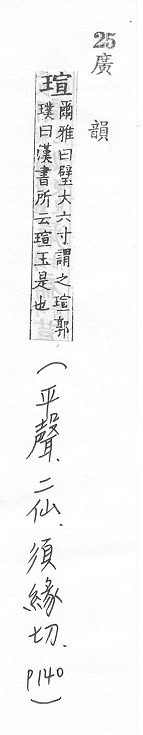 25
廣韻
瑄爾雅曰璧大六寸謂之瑄郭
璞曰漢書所云瑄玉是也
(平聲.二仙.須緣切.P140)